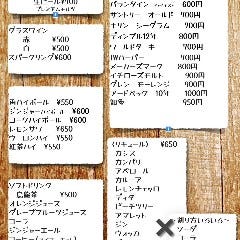 生ビール ¥400
グラスワイン
赤 ¥500
白 ¥500
スパークリング¥600
角ハイボール ¥550
ジンジャーハイ ¥600
コークハイボール ¥600
レモンサワ ¥550
ウーロンハイ ¥550
紅茶ハイ ¥550
ソフトドリンク
烏龍茶 ¥500
オレンジジュース
グレープフルーツジュース
コーラ
ジンジャーエール
バランタイン 600円
サントリー オールド 400円
キリン シーグラム 700円
ディンプル12Y 800円
オールドクロウ 700円
IWハーパー 900円
メーカーズマーク 800円
イチローズモルト 900円
ブレン モーレンジ 900円
ノードベック 12Y 1000円
知多 950円
(リキュール) ¥650
カシス
カンパリ
アペロール
カルーア
レモンチェッロ
ディタ
ピーチツリー
アマレット
ジン
ウォッカ
割り方いろいろ〜
ソーダ